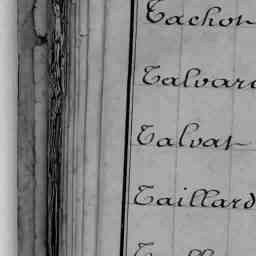 Tachot
Talvard
Talvat
Taillard